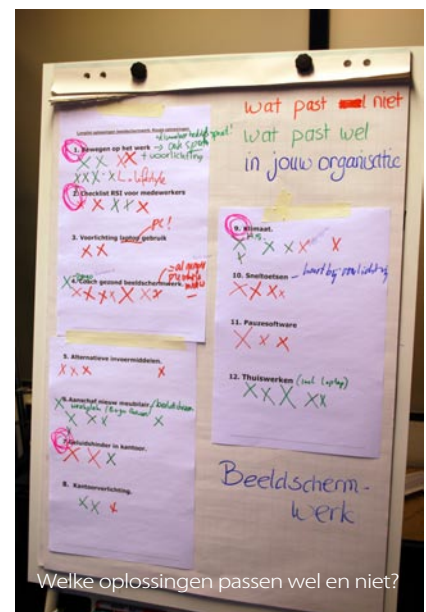 wat past niet
wat past wel
in jouw organisatie
1. Bewegen op het werk
+ voorlichting
2. Checklist RSI voor medewerkers
pc!
3. Voorlichting laptop gebruik
4. Coach gezond beeldschermwerk.
5. Alternatieve invoermiddelen.
6. Aanschaf nieuw meubilair
7. Geluidshinder in kantoor.
8. Kantoorverlichting.
9. Klimaat.
10. Sneltoetsen
11. Pauzesoftware
12. Thuiswerken (incl laptop)
Beeldscherm-
werk
Welke oplossingen passen wel en niet?